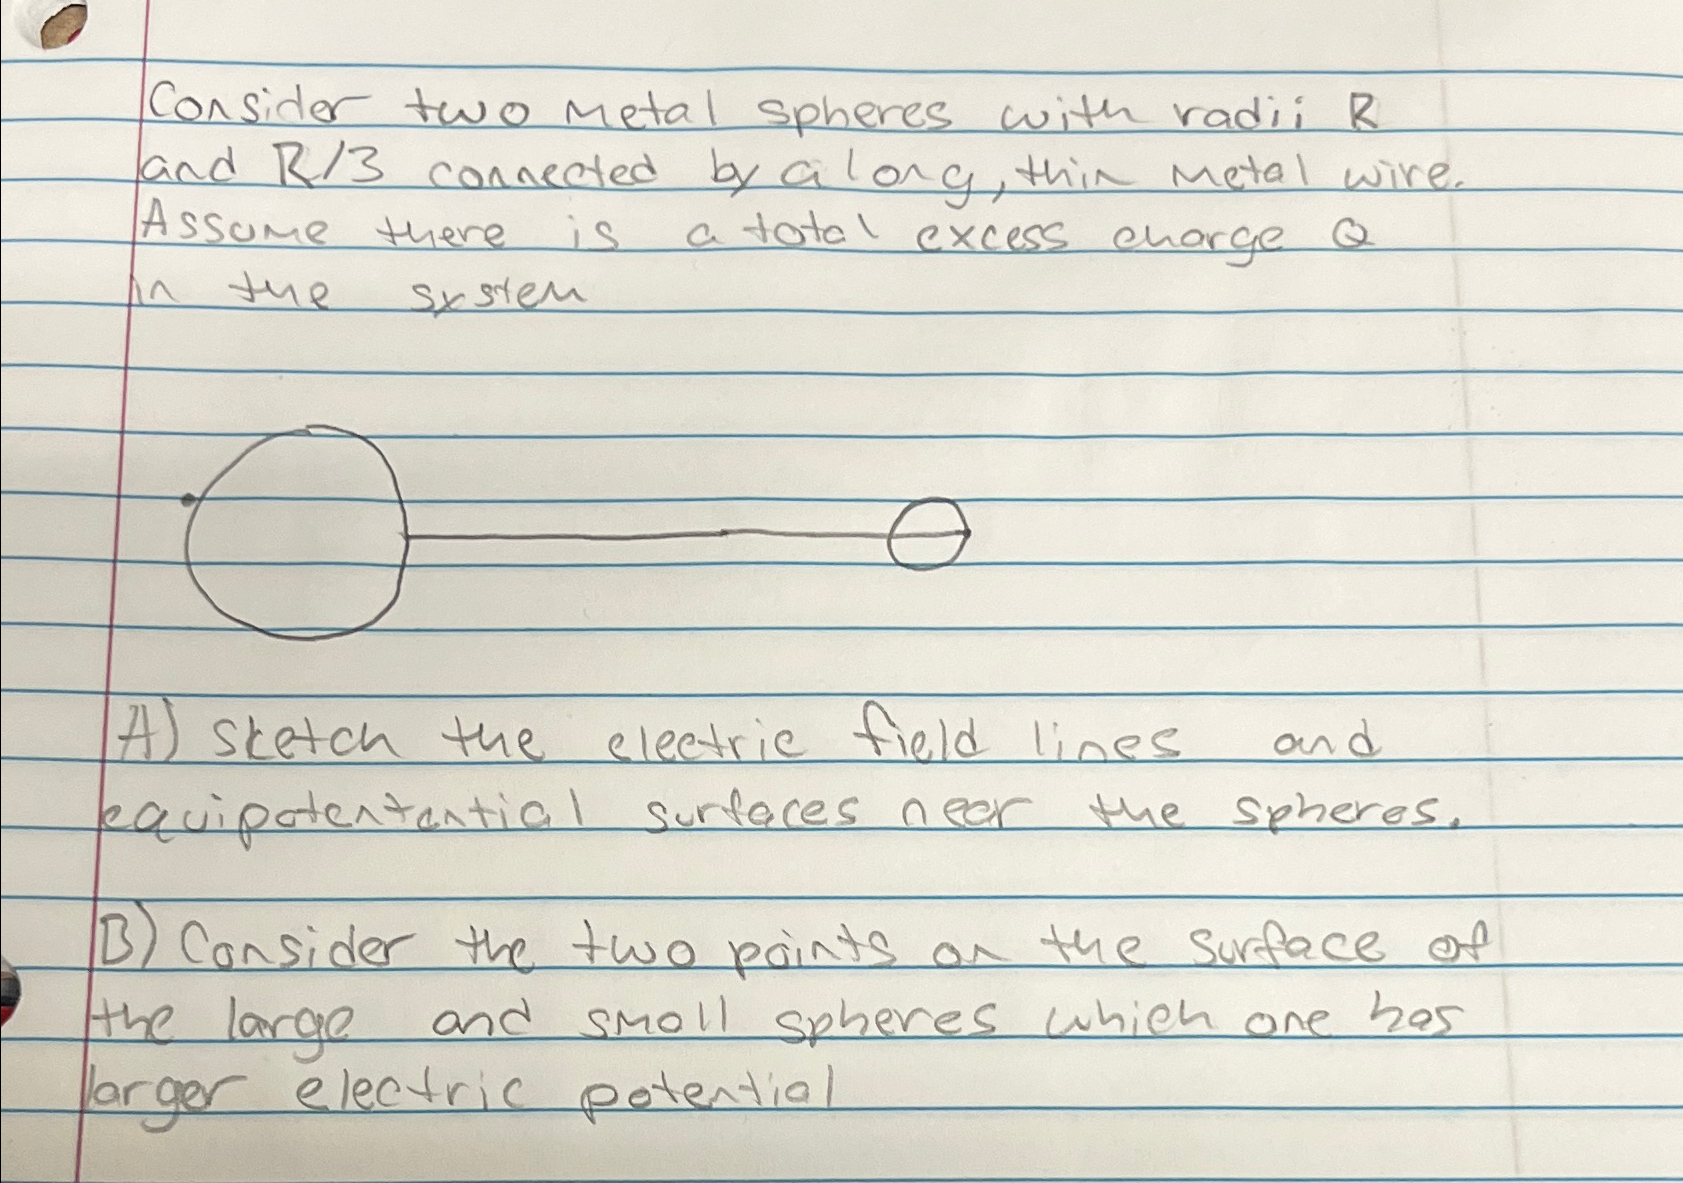 Consider two metal spheres with radii R
and R/3 connected by a long, thin metal wire.
Assume there is a total excess charge Q
in the system
A) Sketch the electric field lines and
equipotentantial surfaces near the spheres.
B) Consider the two points on the surface of
the large and small spheres which one has
larger electric potential